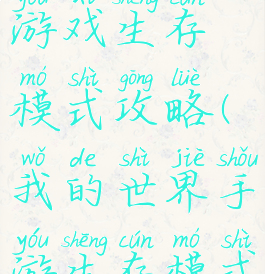 yóu xì shēng cún
游戏生存
mó shì gōng lüè
模式攻略(
wǒ de shì jiè shǒu
我的世界手
yóu shēng cún mó shì
游生存模式